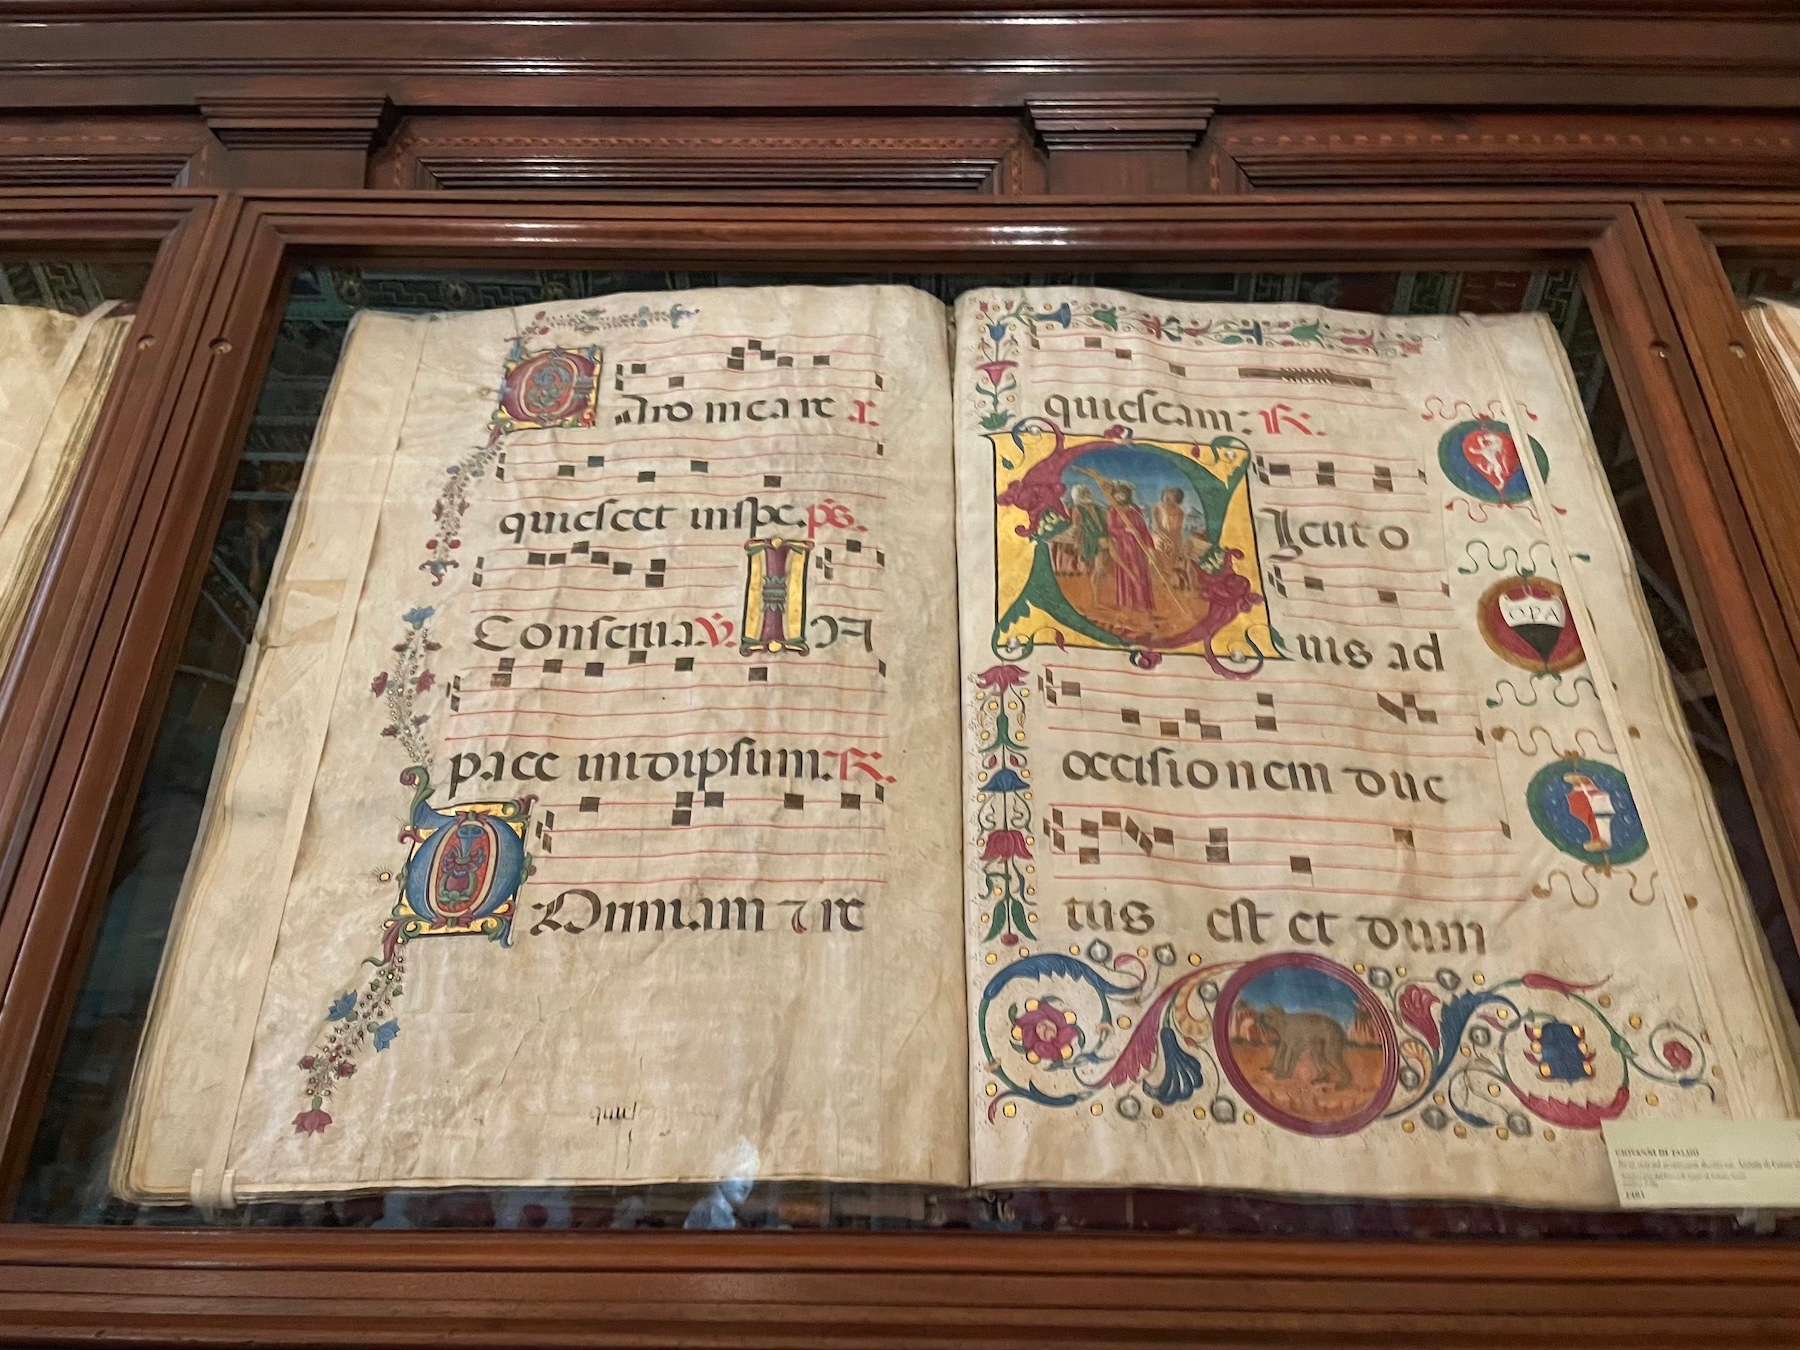 Caro mea re
quiescet in spe. ps.
Conserva. V. In
pace in idipsum. R.
Dormiam et re
quiescam: R.
Sicut o
vis ad
occisionem duc
tus est et dum
OPA
GIOVANNI DI PALIO
1481